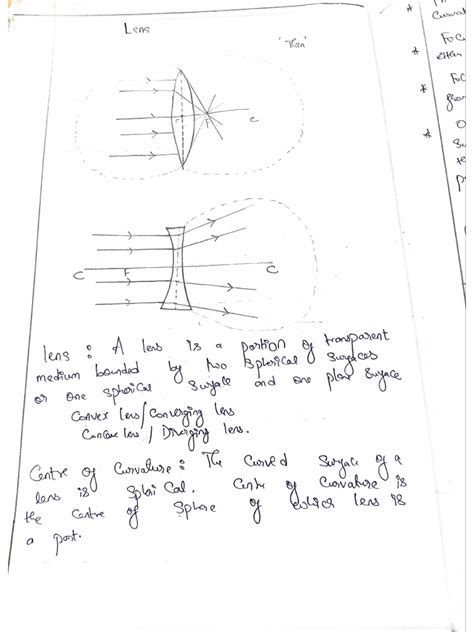 Lens
'Thin'
F
C
C
F
C
lens : A lens is a portion of transparent
medium bounded by two spherical surfaces
or one spherical surface and one plan surface
Convex lens/Converging lens
Concave lens / Diverging lens.
Centre of Curvature : The Curved Surface of a
lens is Spheri Cal. Centre of Curvature is
the Centre of Sphere of which lens is
a part.
Curvat
Focu
either
Foc
from
O
Su
te
P